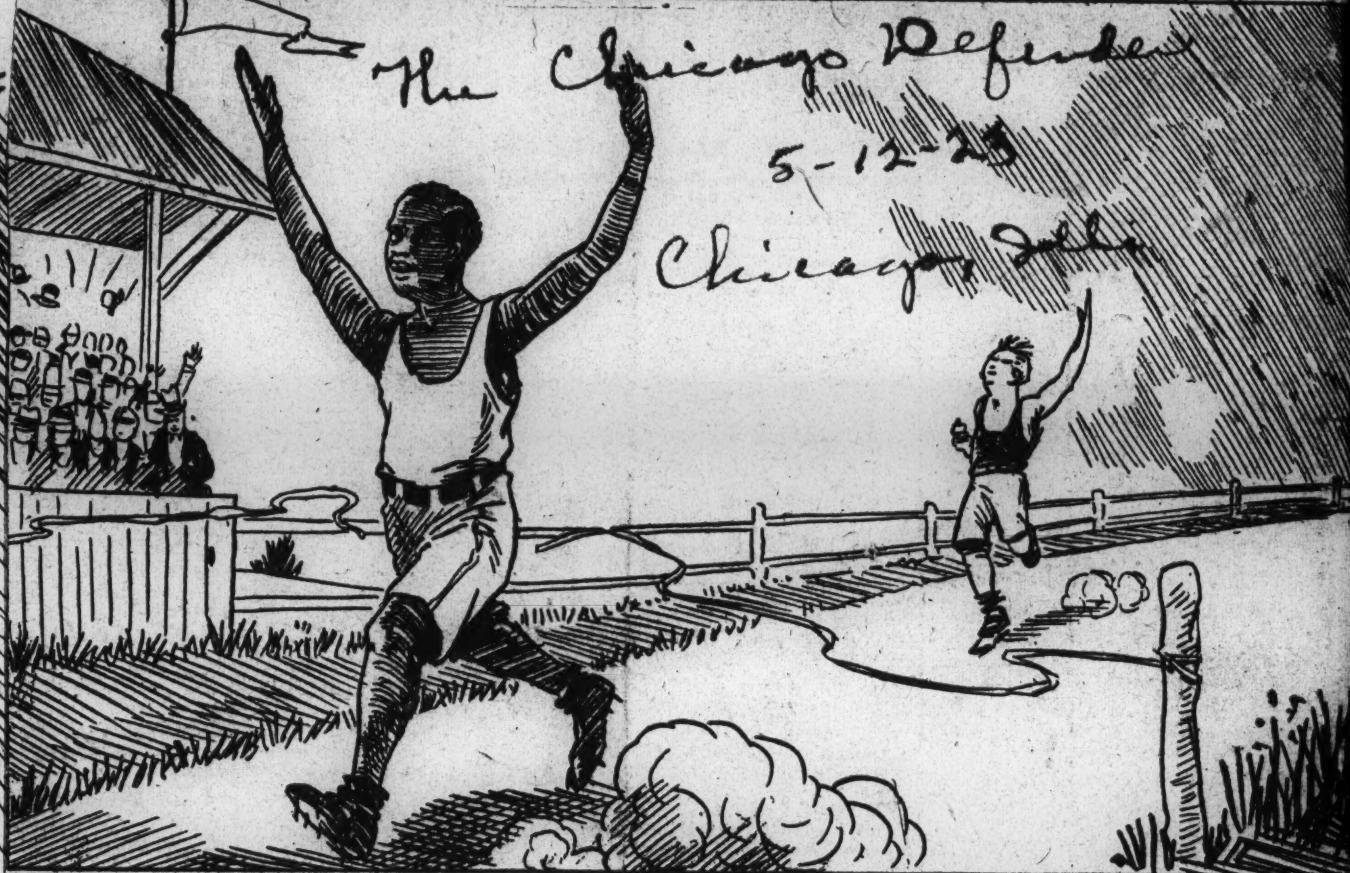 The Chicago Defender
5-12-23
Chicago, Ills.